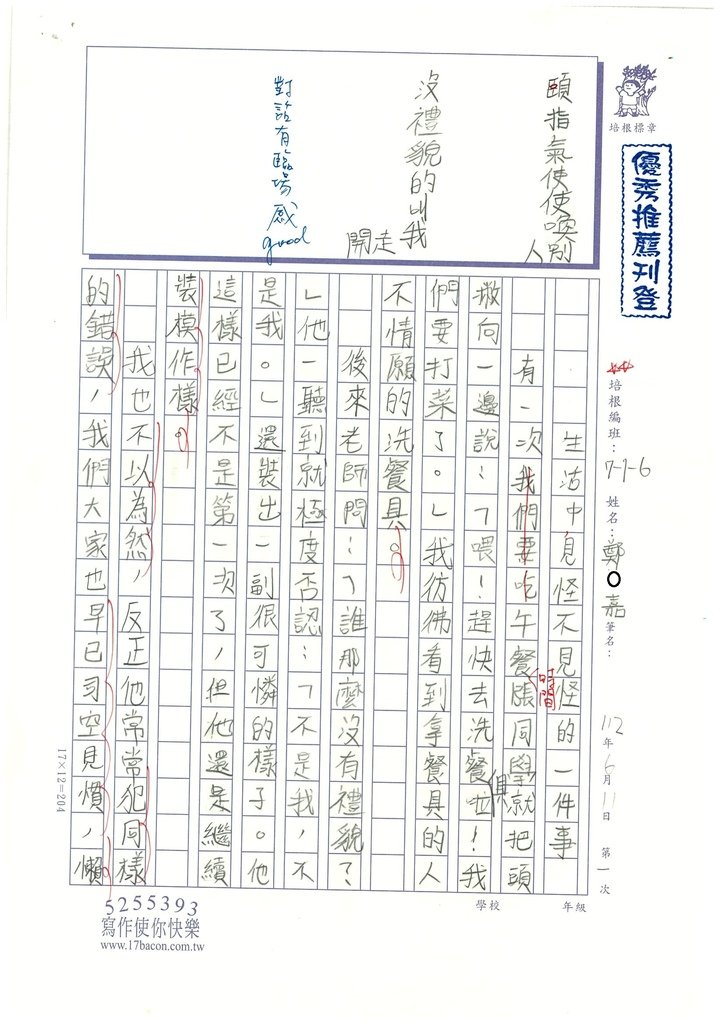 培根標章
優秀推薦刊登
頤指氣使使喚別人
沒禮貌的叫我
開走
對話有臨場感
good
培根編班：7-1-6 姓名：鄭○嘉 筆名：
112年6月11日 第1次
年級
學校
生活中見怪不見怪的一件事
有一次我們要吃午餐張同學就把頭
時間
撇向一邊說：「喂！趕快去洗餐啦！我
具
們要打菜了。」我彷彿看到拿餐具的人
不情願的洗餐具。
後來老師問：「誰那麼沒有禮貌？
」他一聽到就極度否認：「不是我，不
是我。」還裝出一副很可憐的樣子。他
這樣已經不是第一次了，但他還是繼續
裝模作樣。
我也不以為然，反正他常常犯同樣
的錯誤，我們大家也早已司空見慣，懶
17×12=204
5255393
寫作使你快樂
www.17bacon.com.tw